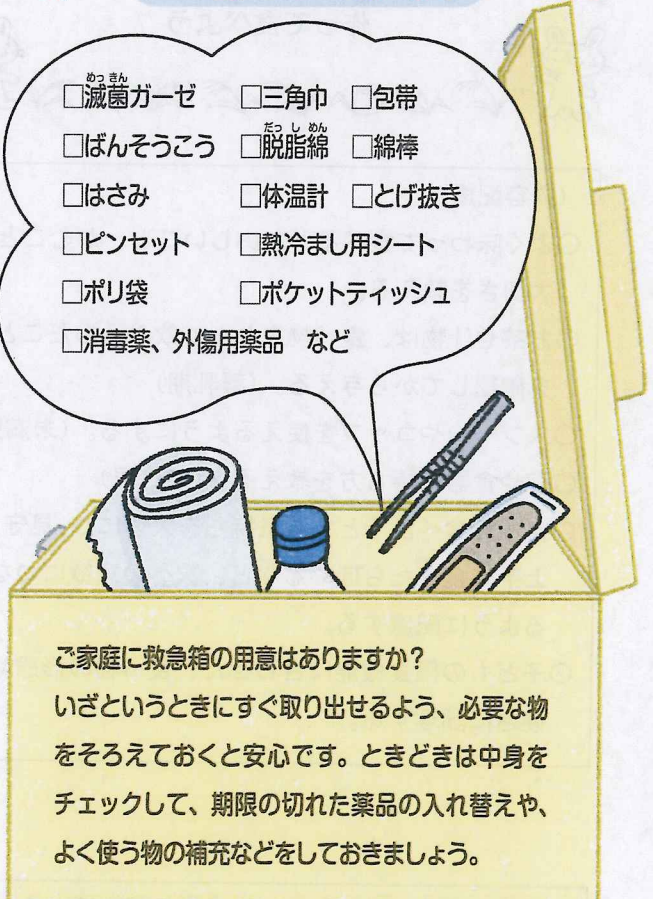 □滅菌ガーゼ □三角巾 □包帯
□ばんそうこう □脱脂綿 □綿棒
□はさみ □体温計 □とげ抜き
□ピンセット □熱冷まし用シート
□ポリ袋 □ポケットティッシュ
□消毒薬、外傷用薬品 など
ご家庭に救急箱の用意はありますか？
いざというときにすぐ取り出せるよう、必要な物
をそろえておくと安心です。ときどきは中身を
チェックして、期限の切れた薬品の入れ替えや、
よく使う物の補充などをしておきましょう。